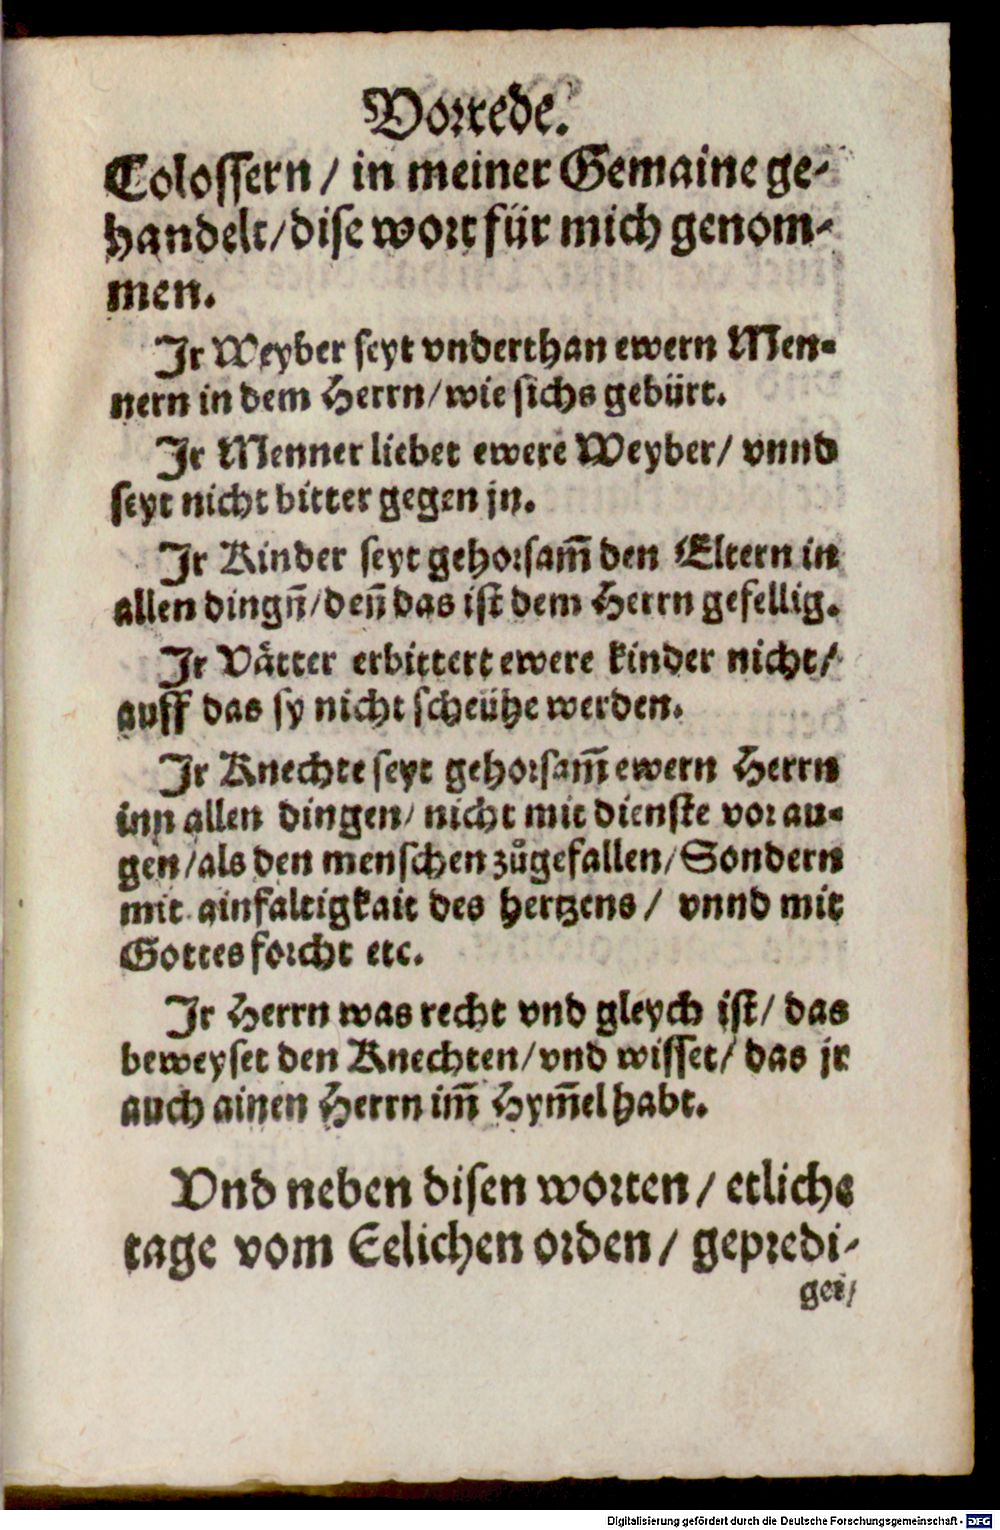 Vorrede.
Colossern / in meiner Gemaine ge-
handelt / dise wort für mich genom-
men.
Jr Weyber seyt vnderthan ewern Men-
nern in dem Herrn / wie sichs gebürt.
Jr Menner liebet ewere Weyber / vnnd
seyt nicht bitter gegen jn.
Jr Kinder seyt gehorsam̃ den Eltern in
allen dingñ / deñ das ist dem Herrn gefellig.
Jr Våtter erbittert ewere kinder nicht /
auff das sy nicht scheühe werden.
Jr Knechte seyt gehorsam̃ ewern Herrn
inn allen dingen / nicht mit dienste vor au-
gen / als den menschen zůgefallen / Sondern
mit ainfaltigkait des hertzens / vnnd mit
Gottes forcht etc.
Jr Herrn was recht vnd gleych ist / das
beweyset den Knechten / vnd wisset / das jr
auch ainen Herrn im̃ Hym̃el habt.
Vnd neben disen worten / etliche
tage vom Eelichen orden / gepredi-
get /
Digitalisierung gefördert durch die Deutsche Forschungsgemeinschaft - DFG